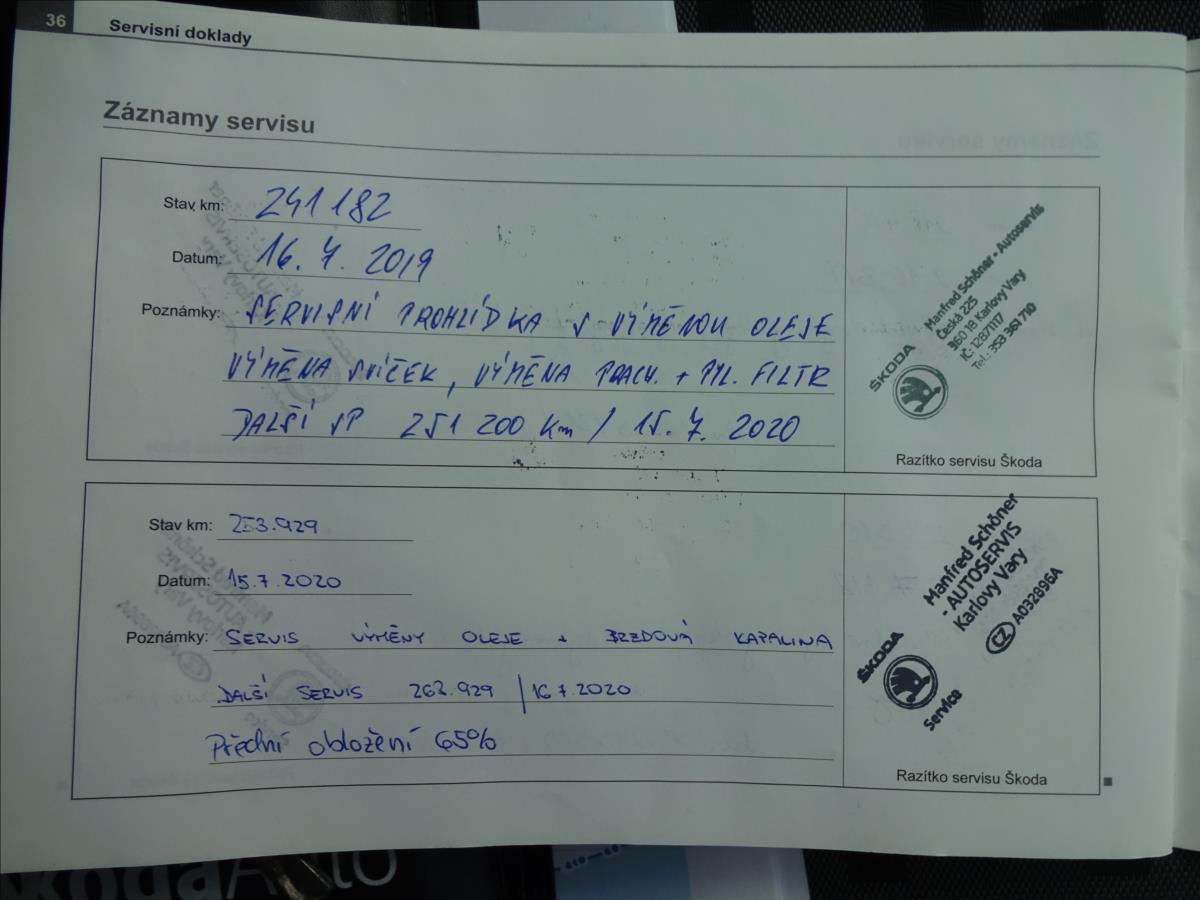 36 Servisní doklady
Záznamy servisu
Stav km: 241 182
Datum: 16. 7. 2019
Poznámky: SERVISNÍ PROHLÍDKA S VÝMĚNOU OLEJE
VÝMĚNA SVÍČEK, VÝMĚNA PRACH. + PYL. FILTR
DALŠÍ SP 251 200 km / 15. 7. 2020
Manfred Schöner - Autoservis
Česká 225
360 18 Karlovy Vary
IČ: 12871117
Tel.: 353 361 710
ŠKODA
Razítko servisu Škoda
Stav km: 253.929
Datum: 15.7.2020
Poznámky: SERVIS VÝMĚNY OLEJE + BRZDOVÁ KAPALINA
DALŠÍ SERVIS 263.929 / 16.7.2020
Přední obložení 65%
Manfred Schöner
- AUTOSERVIS
Karlovy Vary
CZ A032896A
ŠKODA
Service
Razítko servisu Škoda
ŠkodaAuto